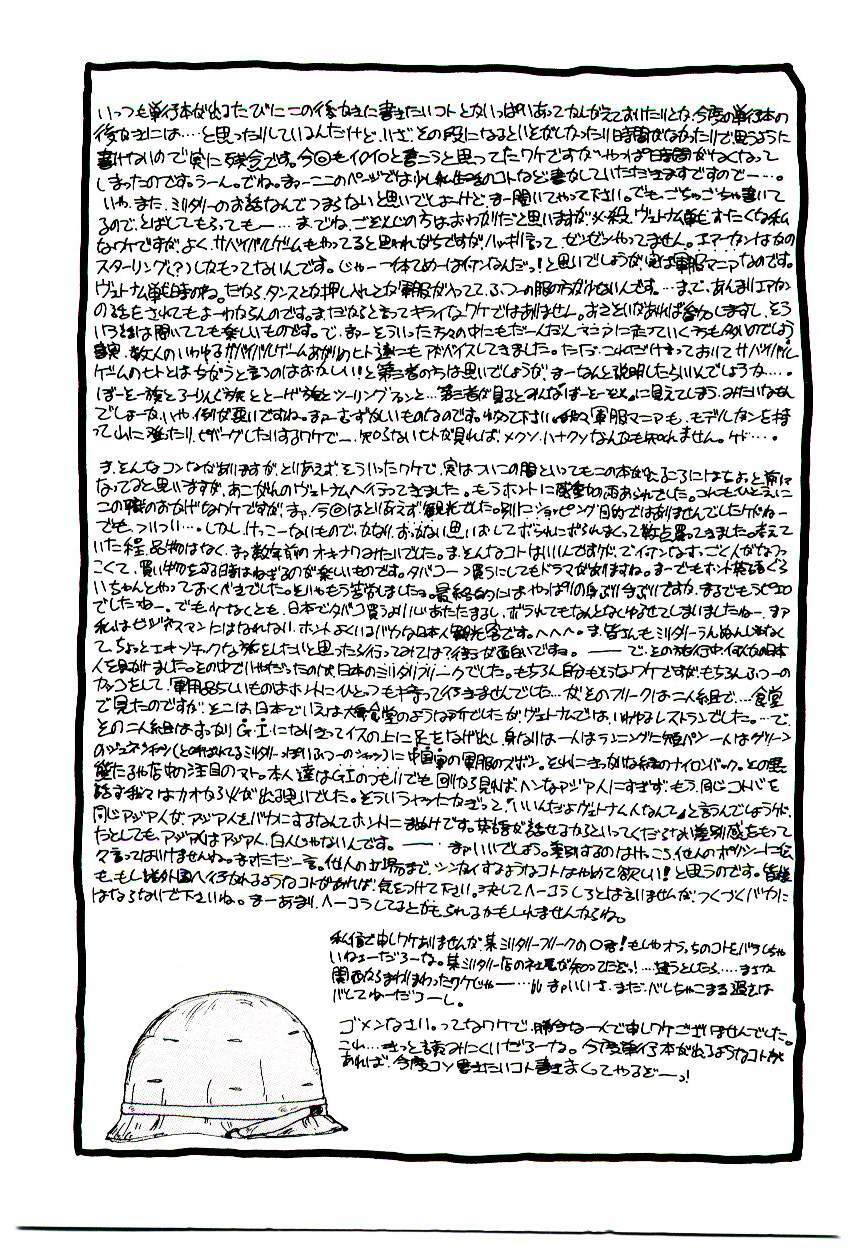 いっつも単行本が出るたびにこの後がきに書きたいコトとかいっぱいあってかんがえておいたりとか、今度の単行本の
後がきには…と思ったりしているんだけど、いざその段になるといそがしかったり時間がなかったりで思うように
書けないので実に残念です。今回もイロイロと書こうと思ってたワケですがやっぱ時間がなくなって
しまったのです。うーん。でね。まァーここのページでは少し私生活のコトなど書かしていただきますですのでー…。
いや、また、ミリタリーのお話なんでつまらないと思いでしょーけど、まー聞いてやって下さい。でもごちゃごちゃ書いて
るので、とばしてもらってもー…。までね、ごぞんじの方はおわかりだと思いますが、必殺、ヴェトナム戦争オタクな私
なワケですが、よく、サバイバルゲームもやってると思われがちですが、ハッキリ言って、ゼンゼンやってません。エアーガンはかの
スターリング(?)しかもってないんです。じゃー一体てめーはナンなんだっ!と思いでしょうが、実は軍服マニアなのです。
ヴェトナム戦争時のね。だから、タンスとか押し入れとか軍服が入ってて、ふつーの服の方が少ないんです。…まで、あんまりエアガン
の話をされてもよーわからんのです。まだだからと言ってキライなワケではありません。おさそいがあれば参加しますし、そう
いう話は聞いてても楽しいものです。で、まァーそういった方々の中にもだーんだんマニアに走っていく方も多いのでしょう
事実、数人のいわゆるサバイバルゲームあがりのヒト達にもアドバイスしてきました。ただ、これだけ言っておいてサバイバル
ゲームのヒトとはちがうと言うのはおかしい!と第三者の方は思いでしょうが、まーなんと説明したらいいんでしょうか…。
ぼーそー族とろーりんぐ族ととーげ族とツーリングマンと…第三者が見るとみんなぼーそーぞくに見えてしまう、みたいなもん
でしょーか、いや、例が悪いですね。まァーむずかしいものなのです。ゆるして下さい。我々軍服マニアも、モデルガンを持
って山に登たり、ビバークしたりするワケでー、知らないヒトが見れば、メクソ、ハナクソなんかも知れません。ケド…。
ま、そんなコンながありますが、とりあえず、そういったワケで、実はついこの間といってもこの本が出るころにはちょっと前に
なってると思いますが、あこがれのヴェトナムへ行ってきました。もうホントに感動の雨あられでした。これもひとえに
この職のおかげなワケですが、まァ、今回はとりあえず観光でした。別にショッピング目的ではありませんでしたけどねー
でも、ついつい…。しかし、けっこーないもので、かなり、おっかない思いおしてボラれにボられまくって数点買ってきました。考えて
いた程、品物はなく、まァ数年前のオキナワみたいでした。ま、そんなコトはいいんですが、でイナンなすっごく人がなつ
こくて、買い物をする時はねぎるのが楽しいものです。タバコ一つ買うにしてもドラマがありますね。まーでもホント英語ぐら
いちゃんとやっておくべきでした。そりゃもう苦労しました。最終的にはやっぱり身ぶり手ぶりですか、まるでもうピエロ
でしたねー。でも少なくとも、日本でタバコ買うよりいい あたたまるし、ボラれてもなんとなくゆるせてしまいましたねー、まァ
私はビジネスマンにはなれない、ホントよくいるバカな日本人観光客です。へへへ。ま、皆さんもミリタリーうんぬんじゃなく
て、ちょっとエキゾチックな旅をしたいと思ったら行ってみてはァ?イイ行が面白いですね。――で、その旅行中イロんな日本
人を見かけました。その中でいやだったのが、日本のミリタリフリークでした。もちろん自分もそうなワケですが、もちろんふつーの
カッコをして「軍用品らしいものはホントにひとつも持って行きませんでした…が そのフリークは二人組で…食堂
で見たのですが、そこは、日本でいえば大衆食堂のような所でしたが、ヴェトナムでは、いわゆるレストランでした。…で、
その二人組はすっかりG・Iになりきってイスの上に足をなげ出し、身なりは一人はランニングに短パン一人はグリーン
のジャングルシャツ(と呼ばれてるミリタリーっぽいふつーのシャツ)に中国軍の軍服のズボン。それにきったない緑のナイロンバック。その異
態たるや店中の注目のマト。本人達はG.Iのつもりでも回りから見ればヘンなアジア人にすぎず、もう、同じコトバを
話す我々はカオから火が出る思いでした。そういうヤツにかぎって「いいんだよヴェトナム人なんて」と言うんでしょうケド、
同じアジア人が、アジア人をバカにするなんてホントにまぬけです。英語が話せるからといってくだらない差別感をもって
たとしても、アジア人はアジア人、白人じゃないんです。――まァいいでしょう。差別するのはけっこう、他人のポリシーに
々言ってはいけませんね。まァただ一言。他人の立場まで、シンガイするようなコトはやめて欲しい!と思うのです。皆様
も、もし諸外国へ行かれるようなコトがあれば、気をつけて下さい。決してヘーコラしろとは言いませんが、つくづくバカに
はならないで下さいね。まーあまり、ヘーコラしてるとかもられるかもしれませんからね。
私信で申しワケありませんが、某ミリタリーフリークの○君!もしやオラっちのコトをバラしちゃ
いねェーだろーな。某ミリタリー店の社長が知ってたぞっ!…違うとしたら……まさか
関西からまわりまわったワケじゃー…ル まァいいさ、まだ、バレちゃこまる過去は
バレてねーだろーし。
ゴメンなさい。ってなワケで、勝手な一人で申しワケございませんでした。
これ…きっと読みにくいだろーな。今度単行本が出るようなコトが
あれば、今度コソ書きたいコト書きまくってやるぞーっ!